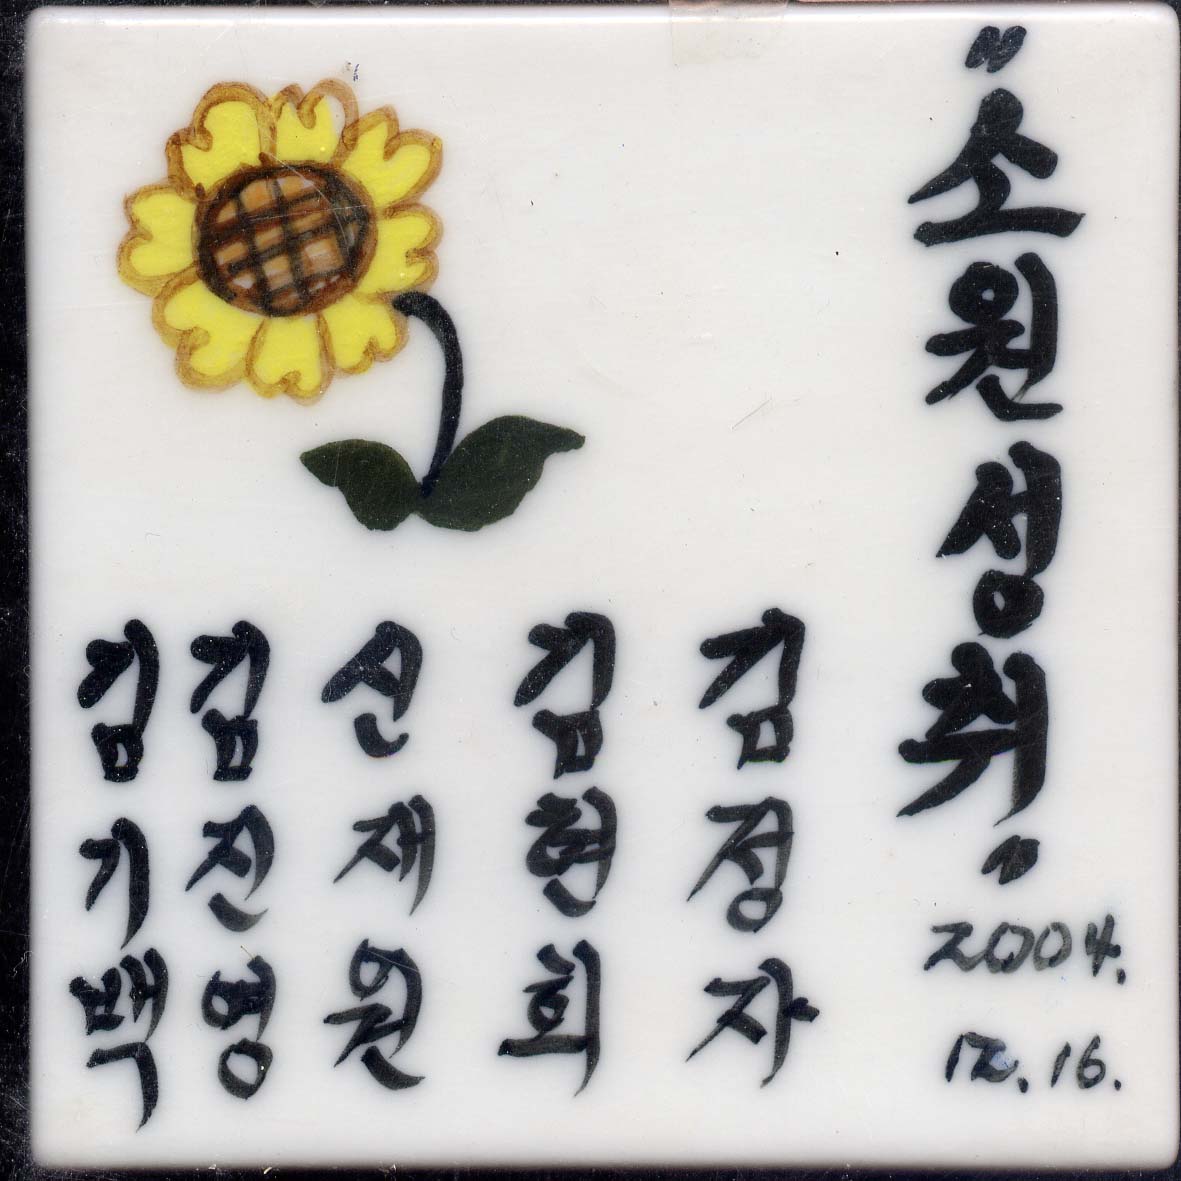 "소원성취"
2004.
12.16.
김정자
김현희
신재원
김진영
김기백